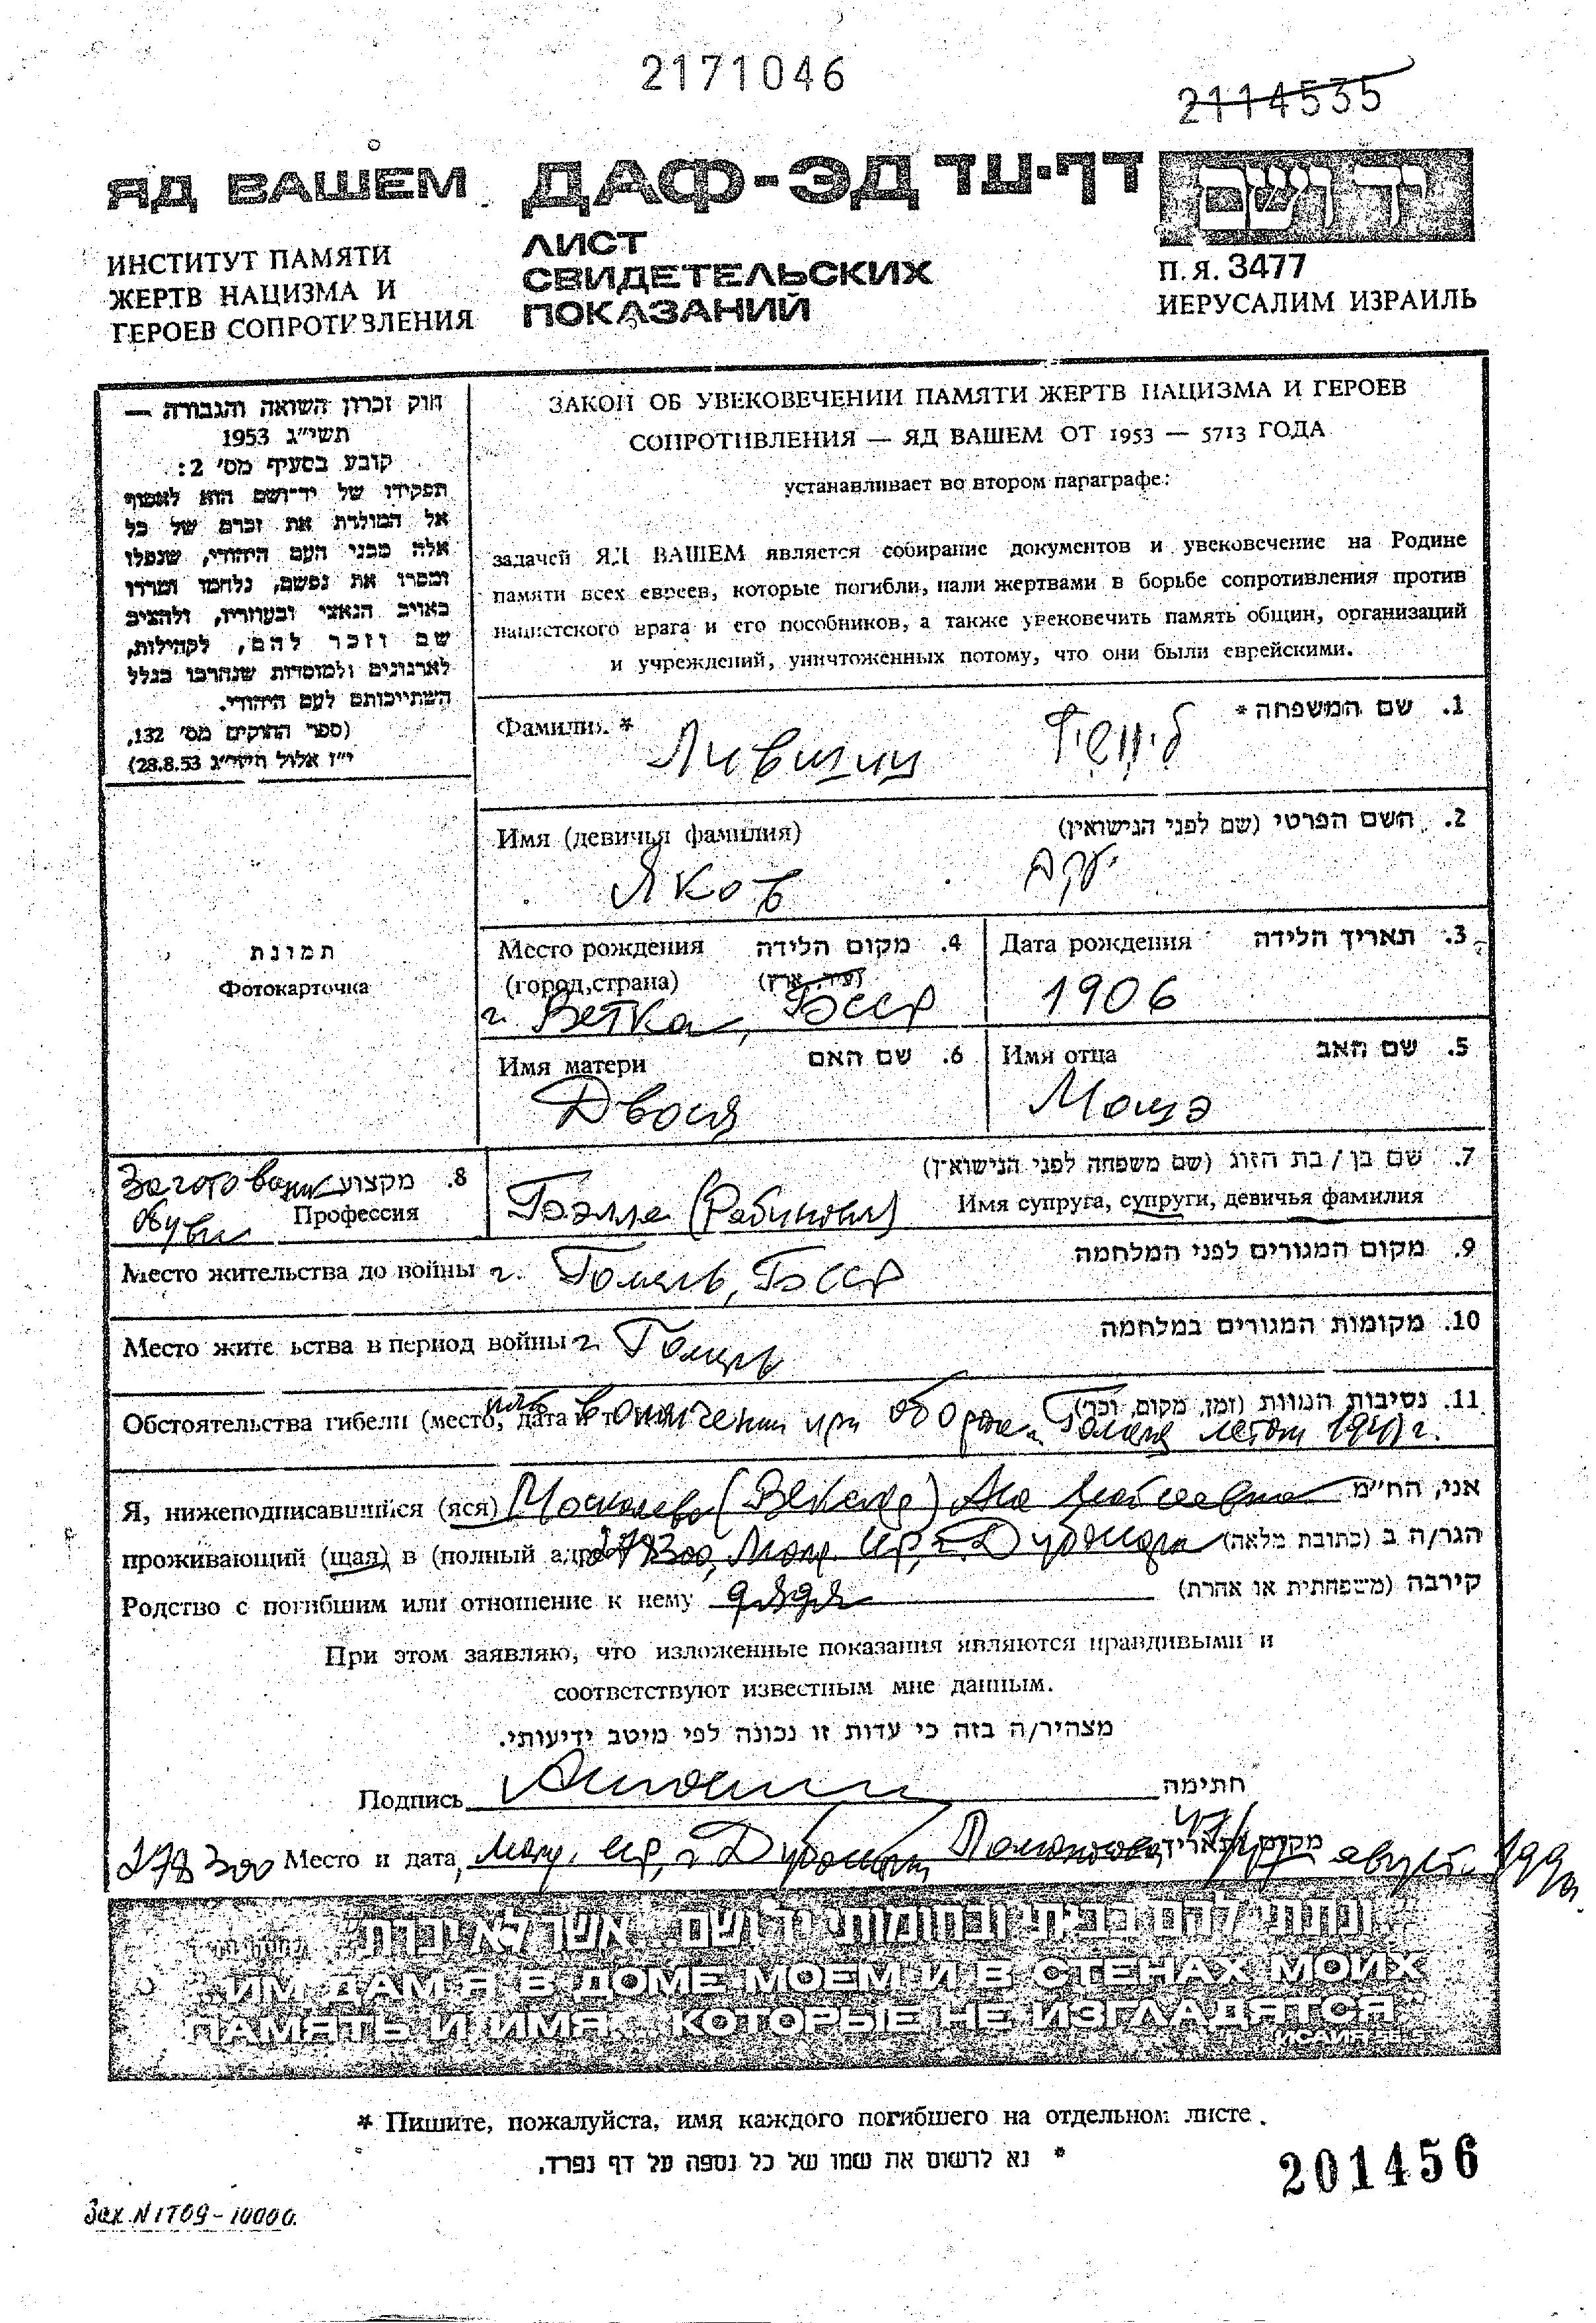 2171046
2114535
ЯД ВАШЕМ
ДАФ-ЭД דף-עד
יד ושם
ИНСТИТУТ ПАМЯТИ
ЖЕРТВ НАЦИЗМА И
ГЕРОЕВ СОПРОТИВЛЕНИЯ
ЛИСТ
СВИДЕТЕЛЬСКИХ
ПОКАЗАНИЙ
П.Я. 3477
ИЕРУСАЛИМ ИЗРАИЛЬ
חוק זכרון השואה והגבורה —
תשי״ג 1953
קובע בסעיף מס׳ 2:
תפקידו של יד־ושם הוא לאסוף
אל המולדת את זכרם של כל
אלה מבני העם היהודי, שנפלו
ומסרו את נפשם, נלחמו ומרדו
באויב הנאצי ובעוזריו, ולהציב
שם וזכר להם, לקהילות,
לארגונים ולמוסדות שנחרבו בגלל
השתייכותם לעם היהודי.
(ספר החוקים מס׳ 132,
י״ז אלול תשי״ג 28.8.53)
ЗАКОН ОБ УВЕКОВЕЧЕНИИ ПАМЯТИ ЖЕРТВ НАЦИЗМА И ГЕРОЕВ
СОПРОТИВЛЕНИЯ — ЯД ВАШЕМ ОТ 1953 — 5713 ГОДА
устанавливает во втором параграфе:
задачей ЯД ВАШЕМ является собирание документов и увековечение на Родине
памяти всех евреев, которые погибли, пали жертвами в борьбе сопротивления против
нацистского врага и его пособников, а также увековечить память общин, организаций
и учреждений, уничтоженных потому, что они были еврейскими.
Фамилия * 1. שם המשפחה *
Лившиц ליוושיץ
Имя (девичья фамилия) 2. השם הפרטי (שם לפני הנישואין)
Яков יעקב
תמונת
Фотокарточка
Место рождения 4. מקום הלידה
(город,страна) (עיר, ארץ)
г. Ветка, БССР
Дата рождения 3. תאריך הלידה
1906
Имя матери 6. שם האם
Двося
Имя отца 5. שם האב
Моисэ
8. מקצוע
Заготовщик
Профессия
обуви
7. שם בן / בת הזוג (שם משפחה לפני הנישואין)
Бэлла (Рабинович) Имя супруга, супруги, девичья фамилия
9. מקום המגורים לפני המלחמה
Место жительства до войны г. Гомель, БССР
10. מקומות המגורים במלחמה
Место жите ьства в период войны г. Гомель
11. נסיבות המוות (זמן, מקום, וכו׳)
Обстоятельства гибели (место, дата и т в ополчении при обороне Гомеля летом 1941 г.
Я, нижеподписавшийся (яся) אני, הח״מ
проживающий (щая) в (полный адре 278300, Молд. ССР, г. Дубоссары הגר/ה ב (כתובת מלאה)
Родство с погибшим или отношение к нему дядя קירבה (משפחתית או אחרת)
При этом заявляю, что изложенные показания являются правдивыми и
соответствуют известным мне данным.
מצהיר/ה בזה כי עדות זו נכונה לפי מיטב ידיעותי.
Подпись חתימה
278300 Место и дата Молд. ССР, г. Дубоссары מקום ותאריך август 1990
ונתתי להם בביתי ובחומותי יד ושם... אשר לא יכרת"
"...ИМ ДАМ Я В ДОМЕ МОЕМ И В СТЕНАХ МОИХ
ПАМЯТЬ И ИМЯ... КОТОРЫЕ НЕ ИЗГЛАДЯТСЯ"
ИСАИЯ 56, 5
* Пишите, пожалуйста, имя каждого погибшего на отдельном листе.
* נא לרשום את שמו של כל נספה על דף נפרד.
201456
Зак. N 1709-10000.